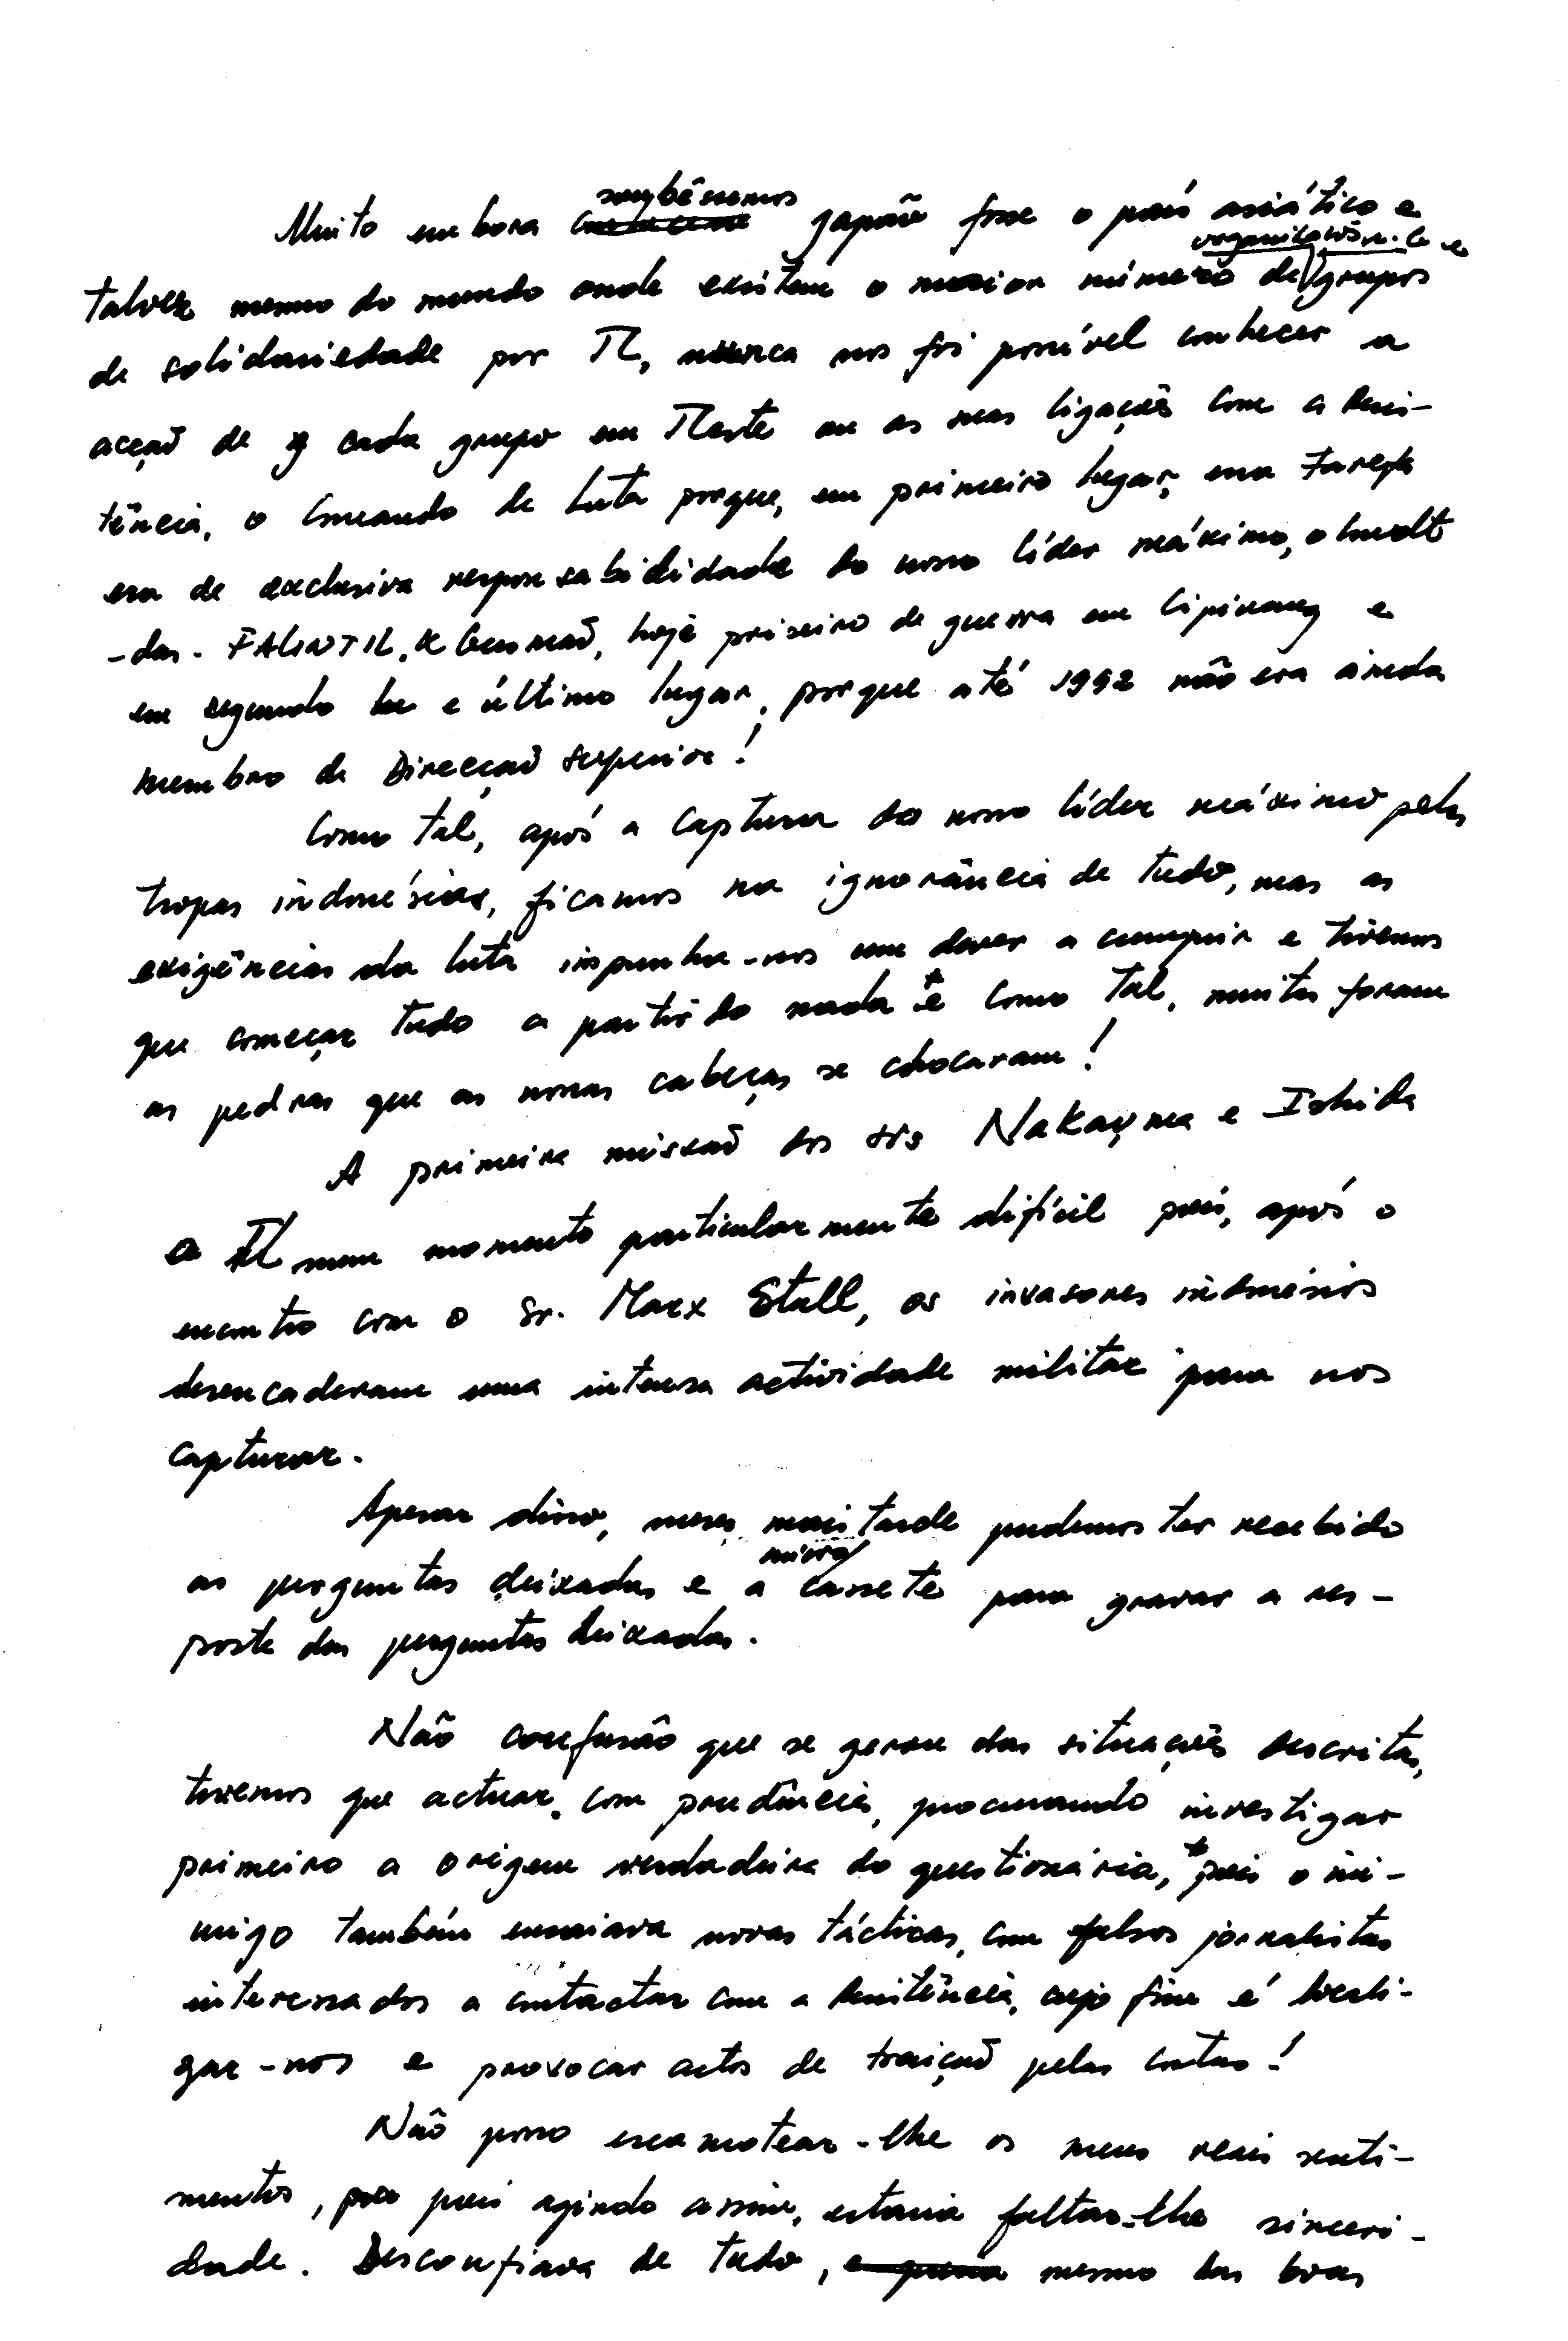 Muito embora soubéssemos Japão fosse o país asiático e
talvez mesmo do mundo onde existem o maior número de organizações e grupos
de solidariedade por TL, nunca nos foi possível conhecer a
acção de cada grupo em TLeste ou as suas ligações com a Resis-
tência, o Comando da Luta porque, em primeiro lugar, essa tarefa
era de exclusiva responsabilidade do nosso líder máximo, o
-das. FALINTIL, K Gusmão, hoje prisioneiro de guerra em Cipinang e
em segundo e último lugar, porque até 1992 não era ainda
membro da Direcção Superior!
Como tal, após a captura do nosso líder máximo pelas
tropas indonésias, ficamos na ignorância de tudo, mas as
exigências da luta impunha-nos um dever a cumprir e tivemos
que começar tudo a partir do nada e como tal, muitas foram
as pedras que as nossas cabeças se chocaram!
A primeira missão dos srs Nakayma e Ishida
a TL num momento particularmente difícil pois, após o
encontro com o Sr. Marx Stall, os invasores indonésios
desencaderam uma intensa actividade militar para nos
capturar.
Apesar disso, meses mais tarde pudemos ter recebido
as perguntas deixadas e a micro/cassete para gravar a res-
posta das perguntas deixadas.
Não confusão que se gerou das situações descritas,
tivemos que actuar, com prudência, procurando investigar
primeiro a origem verdadeira do questionário, pois o ini-
migo também ensaiava novas tácticas, com falsos jornalistas
interessados a contactar com a Resistência, cujo fim é locali-
zar-nos e provocar actos de traição pelos contactos!
Não posso escamotear-lhe os meus reais senti-
mentos, pois agindo assim, estaria faltar-lhe sinceri-
dade. Desconfiava de tudo, mesmo das boas